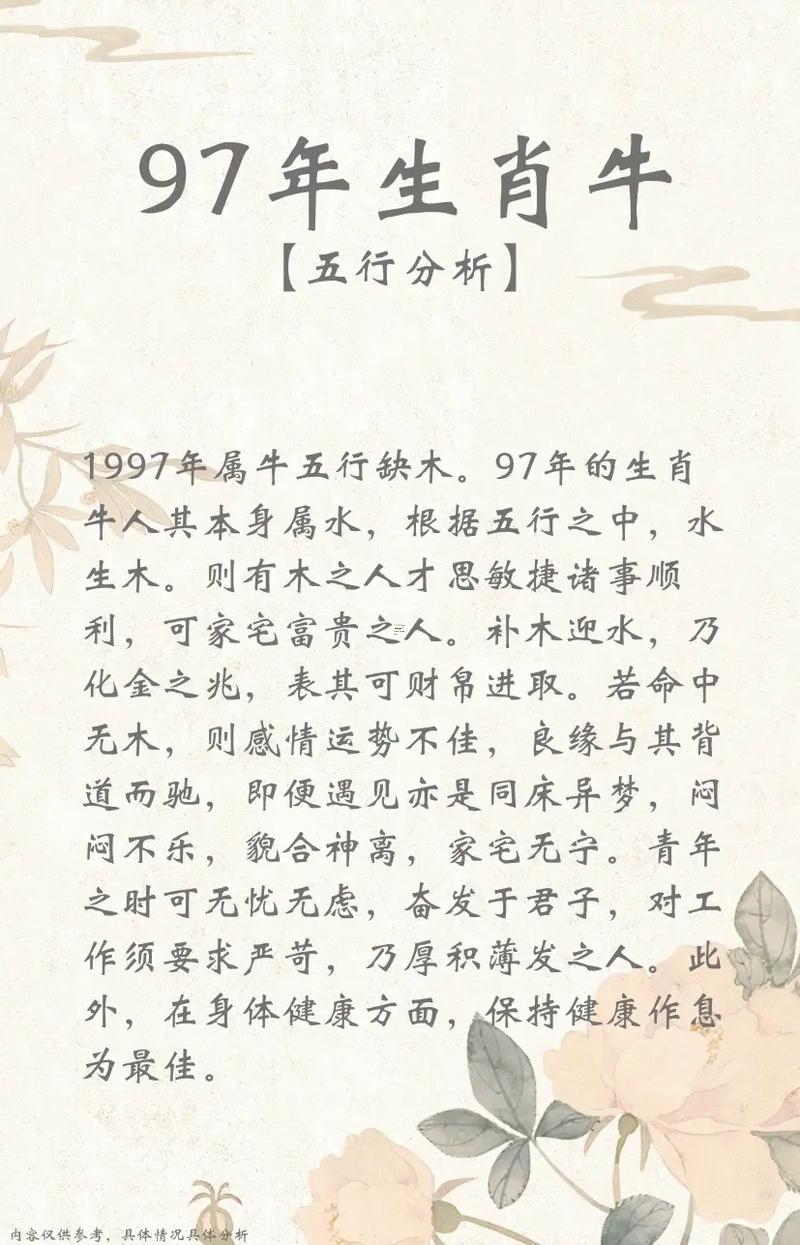 97年生肖牛
【五行分析】
1997年属牛五行缺木。97年的生肖
牛人其本身属水，根据五行之中，水
生木。则有木之人才思敏捷诸事顺
利，可家宅富贵之人。补木迎水，乃
化金之兆，表其可财帛进取。若命中
无木，则感情运势不佳，良缘与其背
道而驰，即便遇见亦是同床异梦，闷
闷不乐，貌合神离，家宅无宁。青年
之时可无忧无虑，奋发于君子，对工
作须要求严苛，乃厚积薄发之人。此
外，在身体健康方面，保持健康作息
为最佳。
内容仅供参考，具体情况具体分析